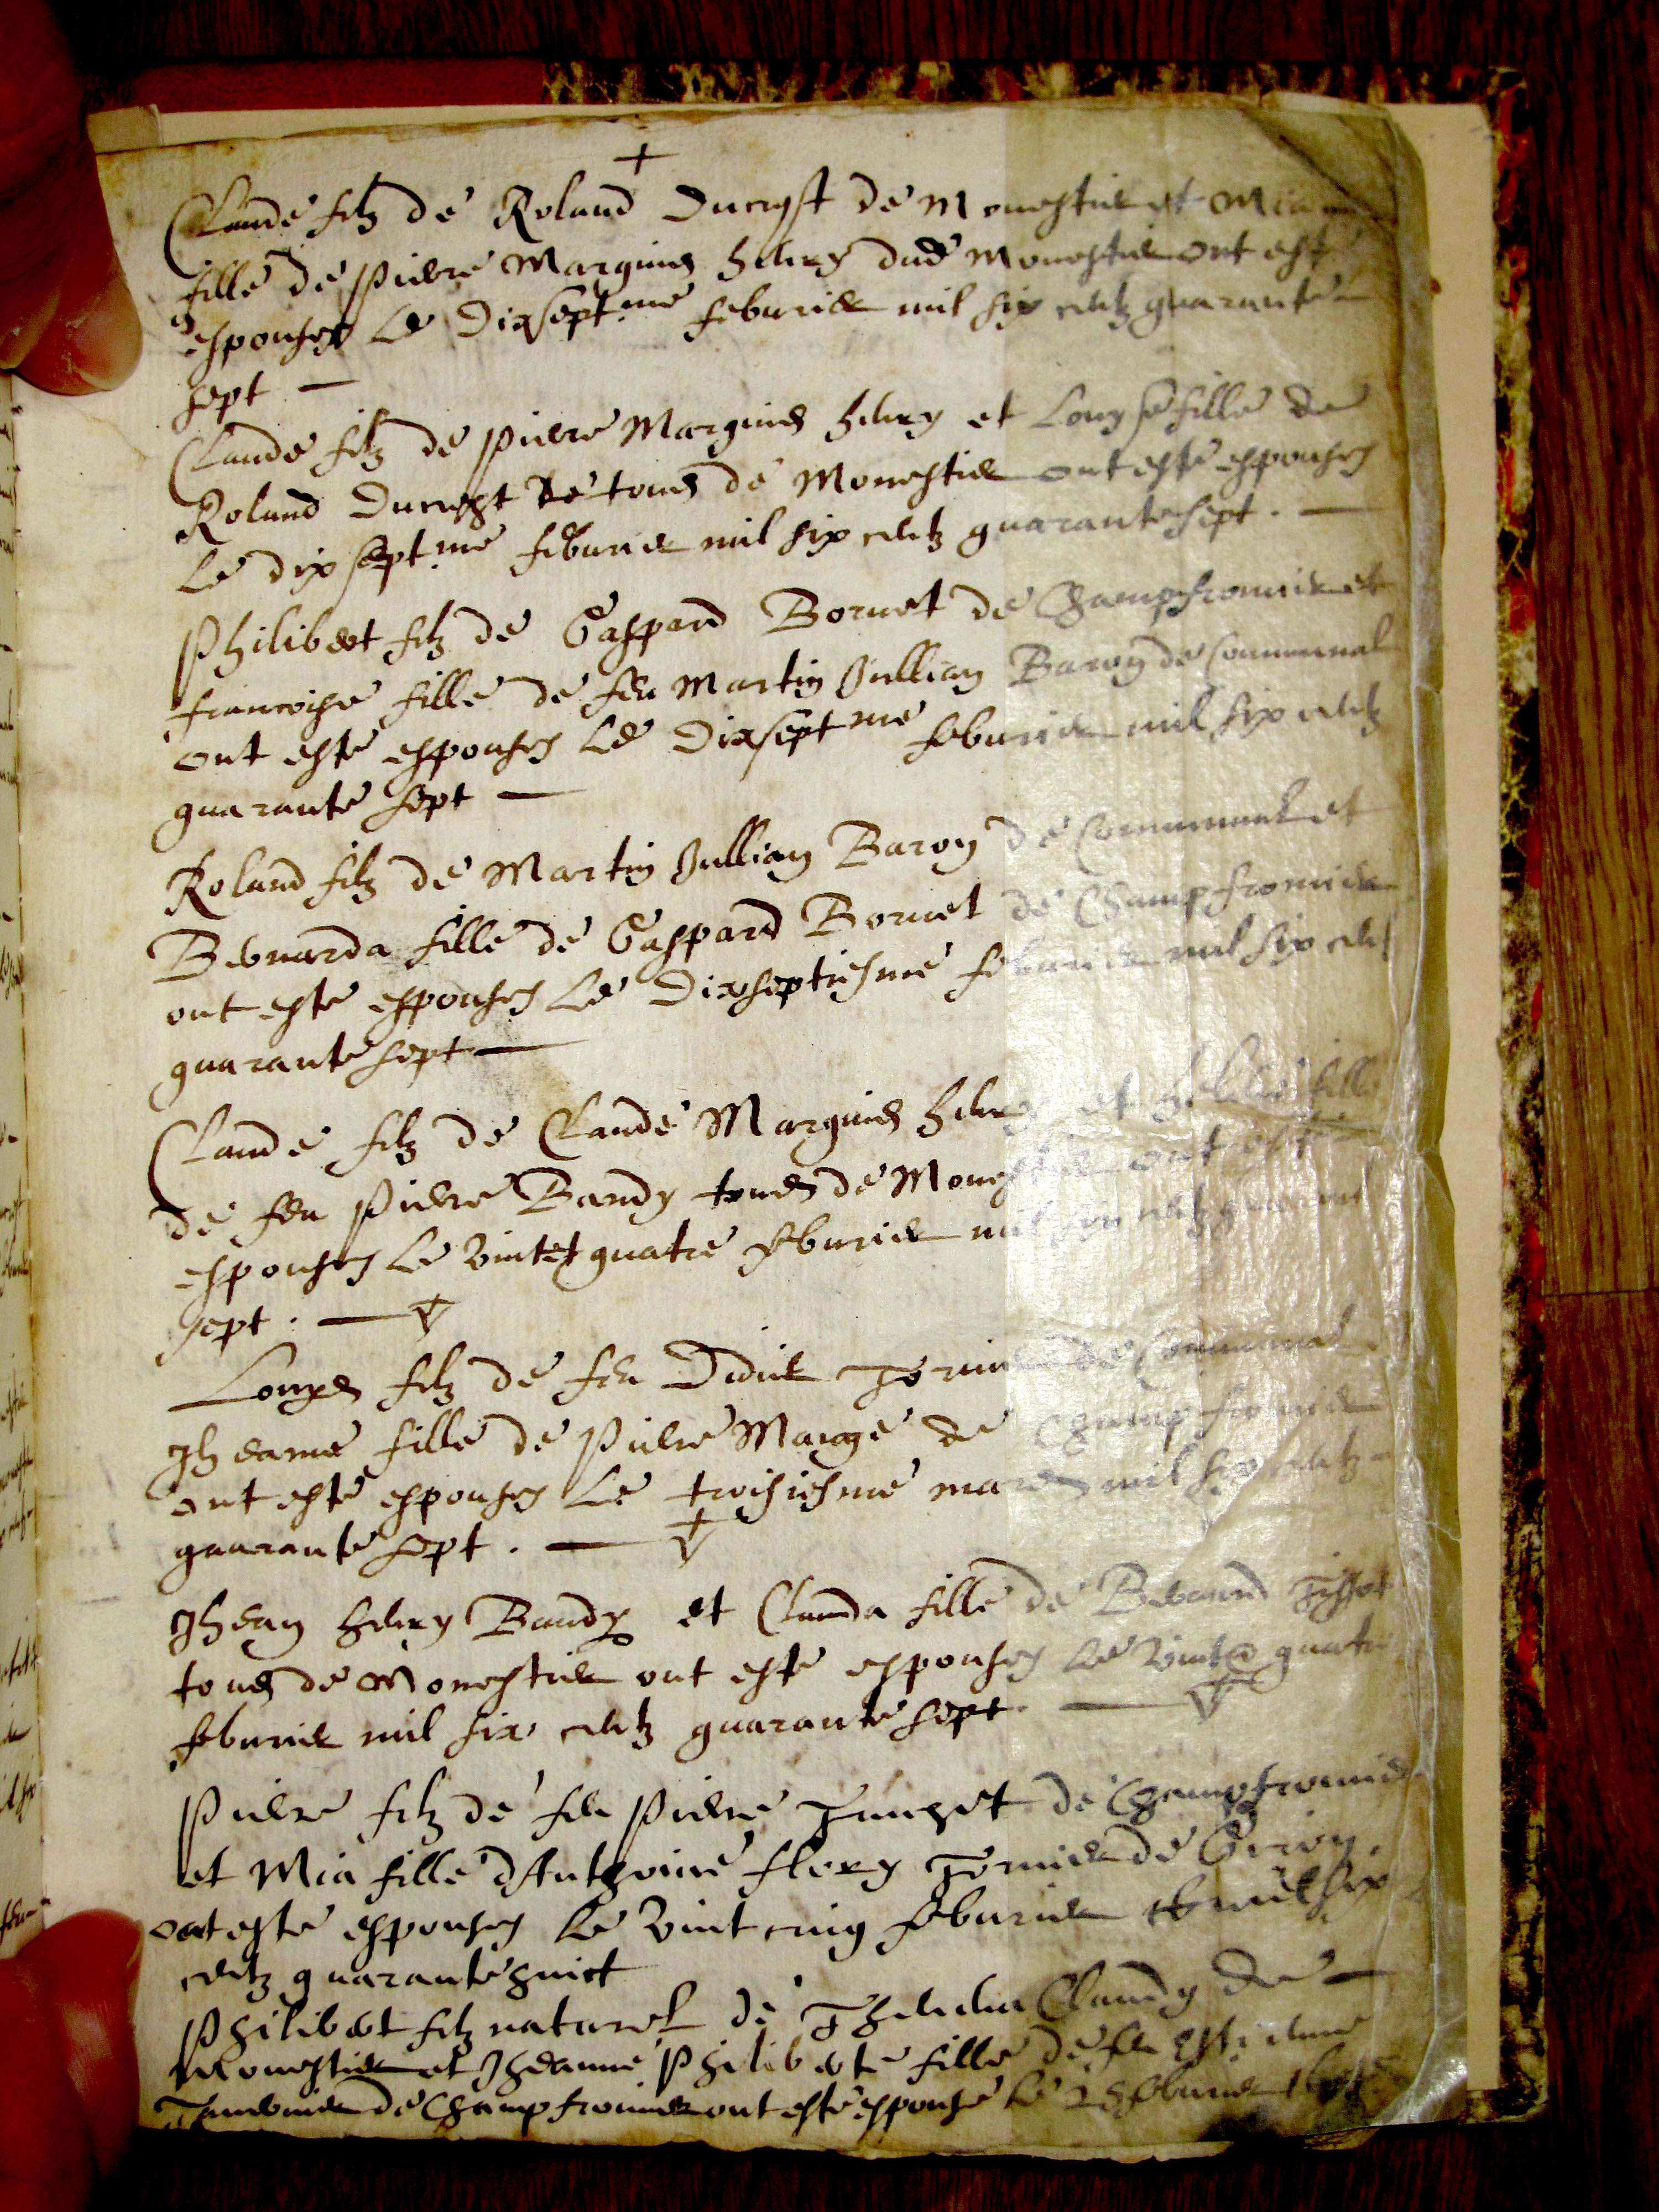 +
Claude filz de Roland Ducrest de Monestier et Mia
fille de Pierre Marquis henry dud Monestier ont esté
espousez le dixsept.me feburier mil six centz quarante
sept —
Claude filz de Pierre Marquis henry et Louyse fille de
Roland Ducrest tous de Monestier ont esté espouses
le dix sept.me feburier mil six centz quarante sept. —
Philibert filz de Gaspard Bornet de Champfromier et
francoise fille de feu Martin Jullian Baron de Communal
ont esté espouses le dixsept me feburier mil six centz
quarante sept —
Roland filz de Martin Jullian Baron de Communal et
Bernarda fille de Gaspard Bornet de Champfromier
ont esté espouses le dixseptiesme feburier mil six centz
quarante sept —
Claude filz de Claude Marquis henry et fille
de feu Pierre Baudy tous de Monestier ont esté
espouses le vintet quatre feburier mil six centz quarante
sept. —
Louys filz de feu Didier Tornier de Communal
Jheanne fille de Pierre de Champfromier
ont esté espouses le troisiesme mars mil six centz
quarante sept. —
Jhean henry Baudy et Clauda fille de Bernard Tissot
tous de Monestier ont esté espouses le vint et quatre
feburier mil six centz quarante sept. —
Pierre filz de feu Pierre de Champfromier
et Mia fille d'Anthoine flory Tornier de
ont esté espouses le vint cinq feburier mil six
centz quarante huict
Philibert filz naturel de Claudy de —
Monestier et Jheanne Philiberte fille de feu Estienne
Tavernier de Champfromier ont esté espouse le 25 feburier